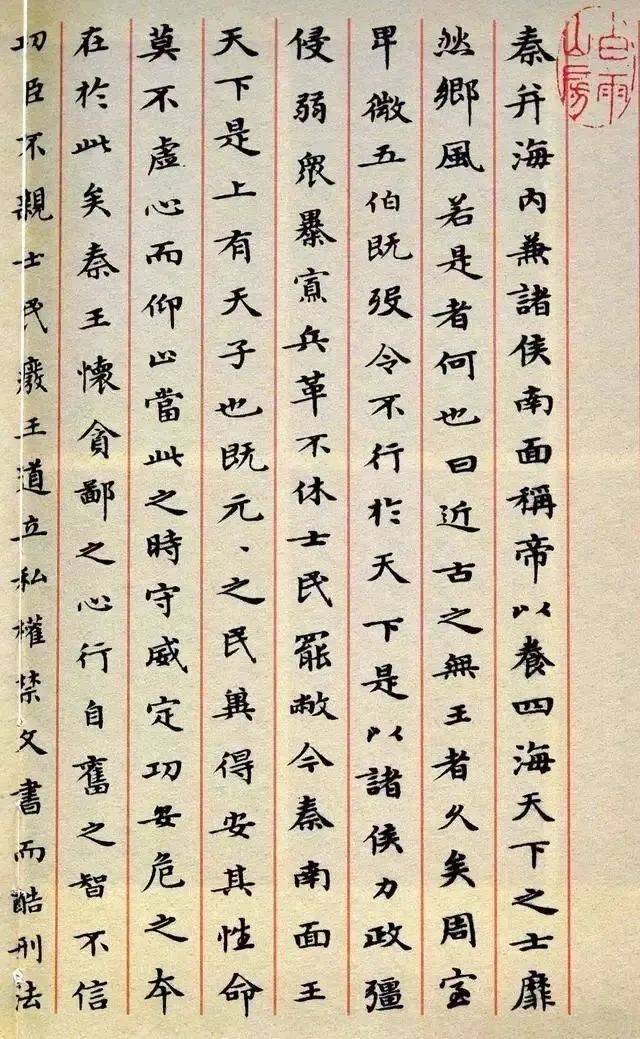 白雲山房
秦并海内兼諸侯南面稱帝以養四海天下之士靡
然鄉風若是者何也曰近古之無王者久矣周室
卑微五伯既歿令不行於天下是以諸侯力政彊
侵弱眾暴寡兵革不休士民罷敝今秦南面王
天下是上有天子也既元、之民兾得安其性命
莫不虛心而仰上當此之時守威定功安危之本
在於此矣秦王懷貪鄙之心行自奮之智不信
功臣不親士民廢王道立私權禁文書而酷刑法